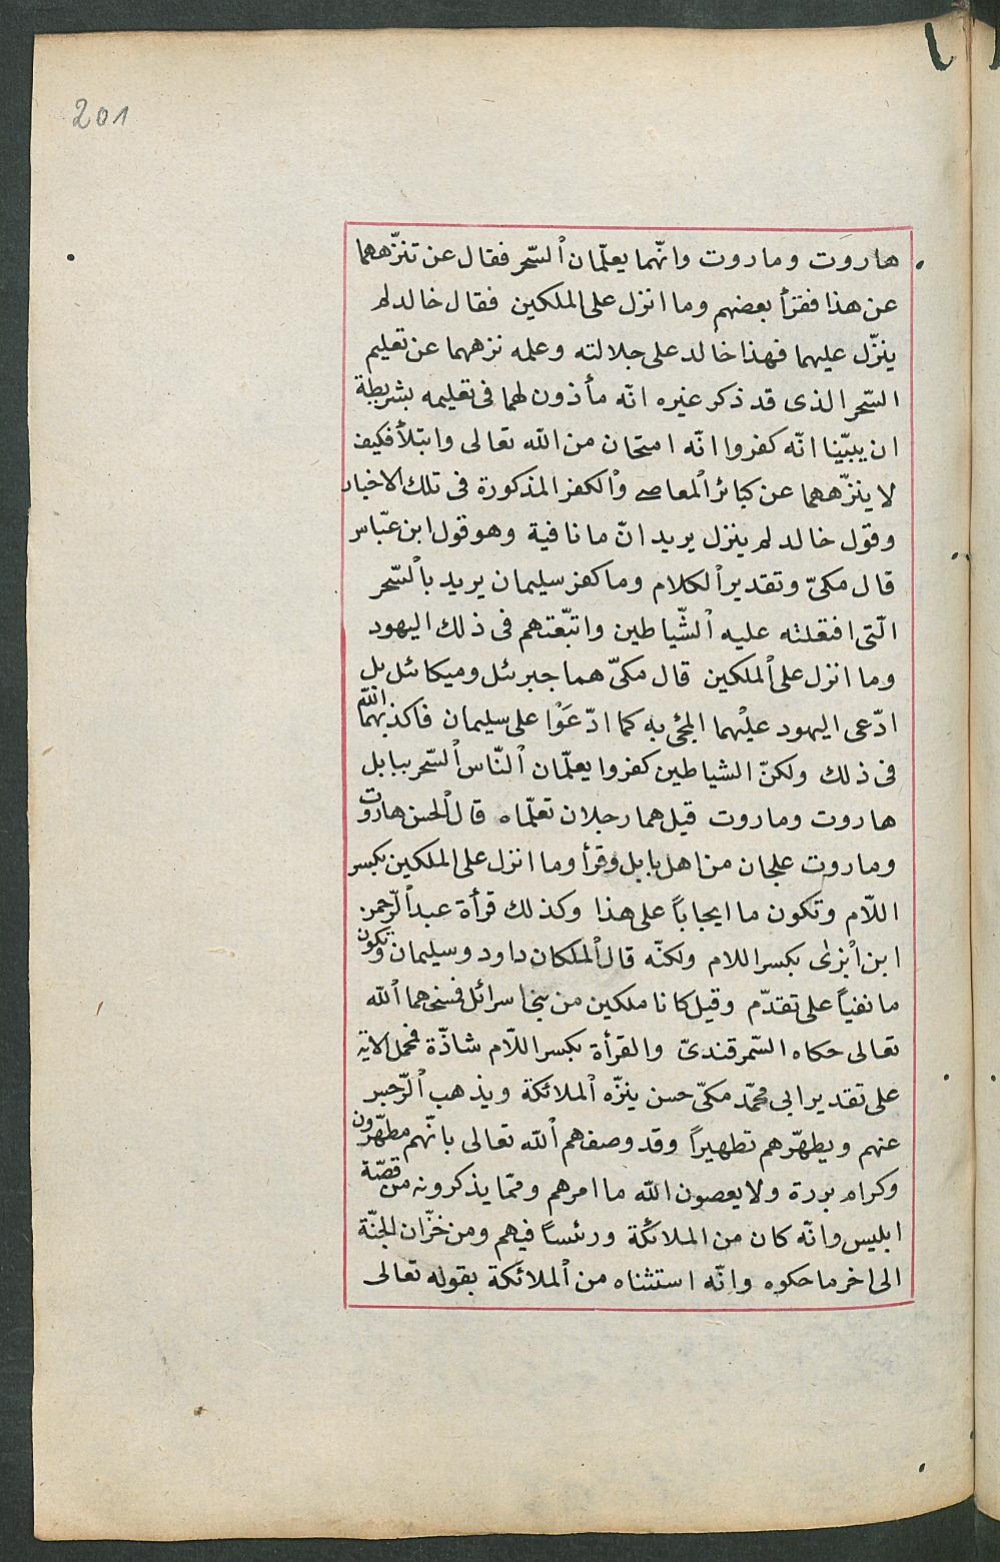 201
هاروت وماروت وانّهما يعلّمان السّحر فقال عن تنزّههما
عن هذا فقرأ بعضهم وما انزل على الملكين فقال خالد لم
ينزّل عليهما فهذا خالد على جلالته وعلمه نزههما عن تعليم
السّحر الذى قد ذكر غيره انّه مأذون لهما فى تعليمه بشريطة
ان يبيّنا انّه كفروا انّه امتحان من الله تعالى وابتلأ فكيف
لا ينزّههما عن كبائر المعاصى والكفر المذكورة فى تلك الاخبار
وقول خالد لم ينزل يريد انّ ما نافية وهو قول ابن عبّاس
قال مكىّ وتقدير الكلام وما كفر سليمان يريد بالسّحر
الّتى افتعلته عليه الشّياطين واتبّعتهم فى ذلك اليهود
وما انزل على الملكين قال مكىّ هما جبرئل وميكائل بل
ادّعى اليهود عليهما المجئ به كما ادّعَوْا على سليمان فاكذبهما الله
فى ذلك ولكنّ الشياطين كفروا يعلّمان النّاس السّحر ببابل
هاروت وماروت قيل هما رجلان تعلّماه قال الحسن هاروت
وماروت علجان من اهل بابل وقرأ وما انزل على الملكين بكسر
اللّام وتكون ما ايجاباً على هذا وكذلك قرأة عبد الرّحمن
ابن ابزى بكسر اللام ولكنّه قال الملكان داود وسليمان وتكون
ما نفياً على تقدّم وقيل كانا ملكين من بنى اسرائل فمسخهما الله
تعالى حكاه السّمرقندىّ والقرأة بكسر اللّام شاذّة فحمل الاية
على تقدير ابى محمّد مكىّ حسن ينزّه الملائكة ويذهب الرّجس
عنهم ويطهّرهم تطهيراً وقد وصفهم الله تعالى بانّهم مطهّرون
وكرام بررة ولا يعصون الله ما امرهم وممّا يذكرونه من قصّة
ابليس وانّه كان من الملائكة ورئسا فيهم ومن خزّان الجنّة
الى اخر ما حكوه وانّه استثناه من الملائكة بقوله تعالى